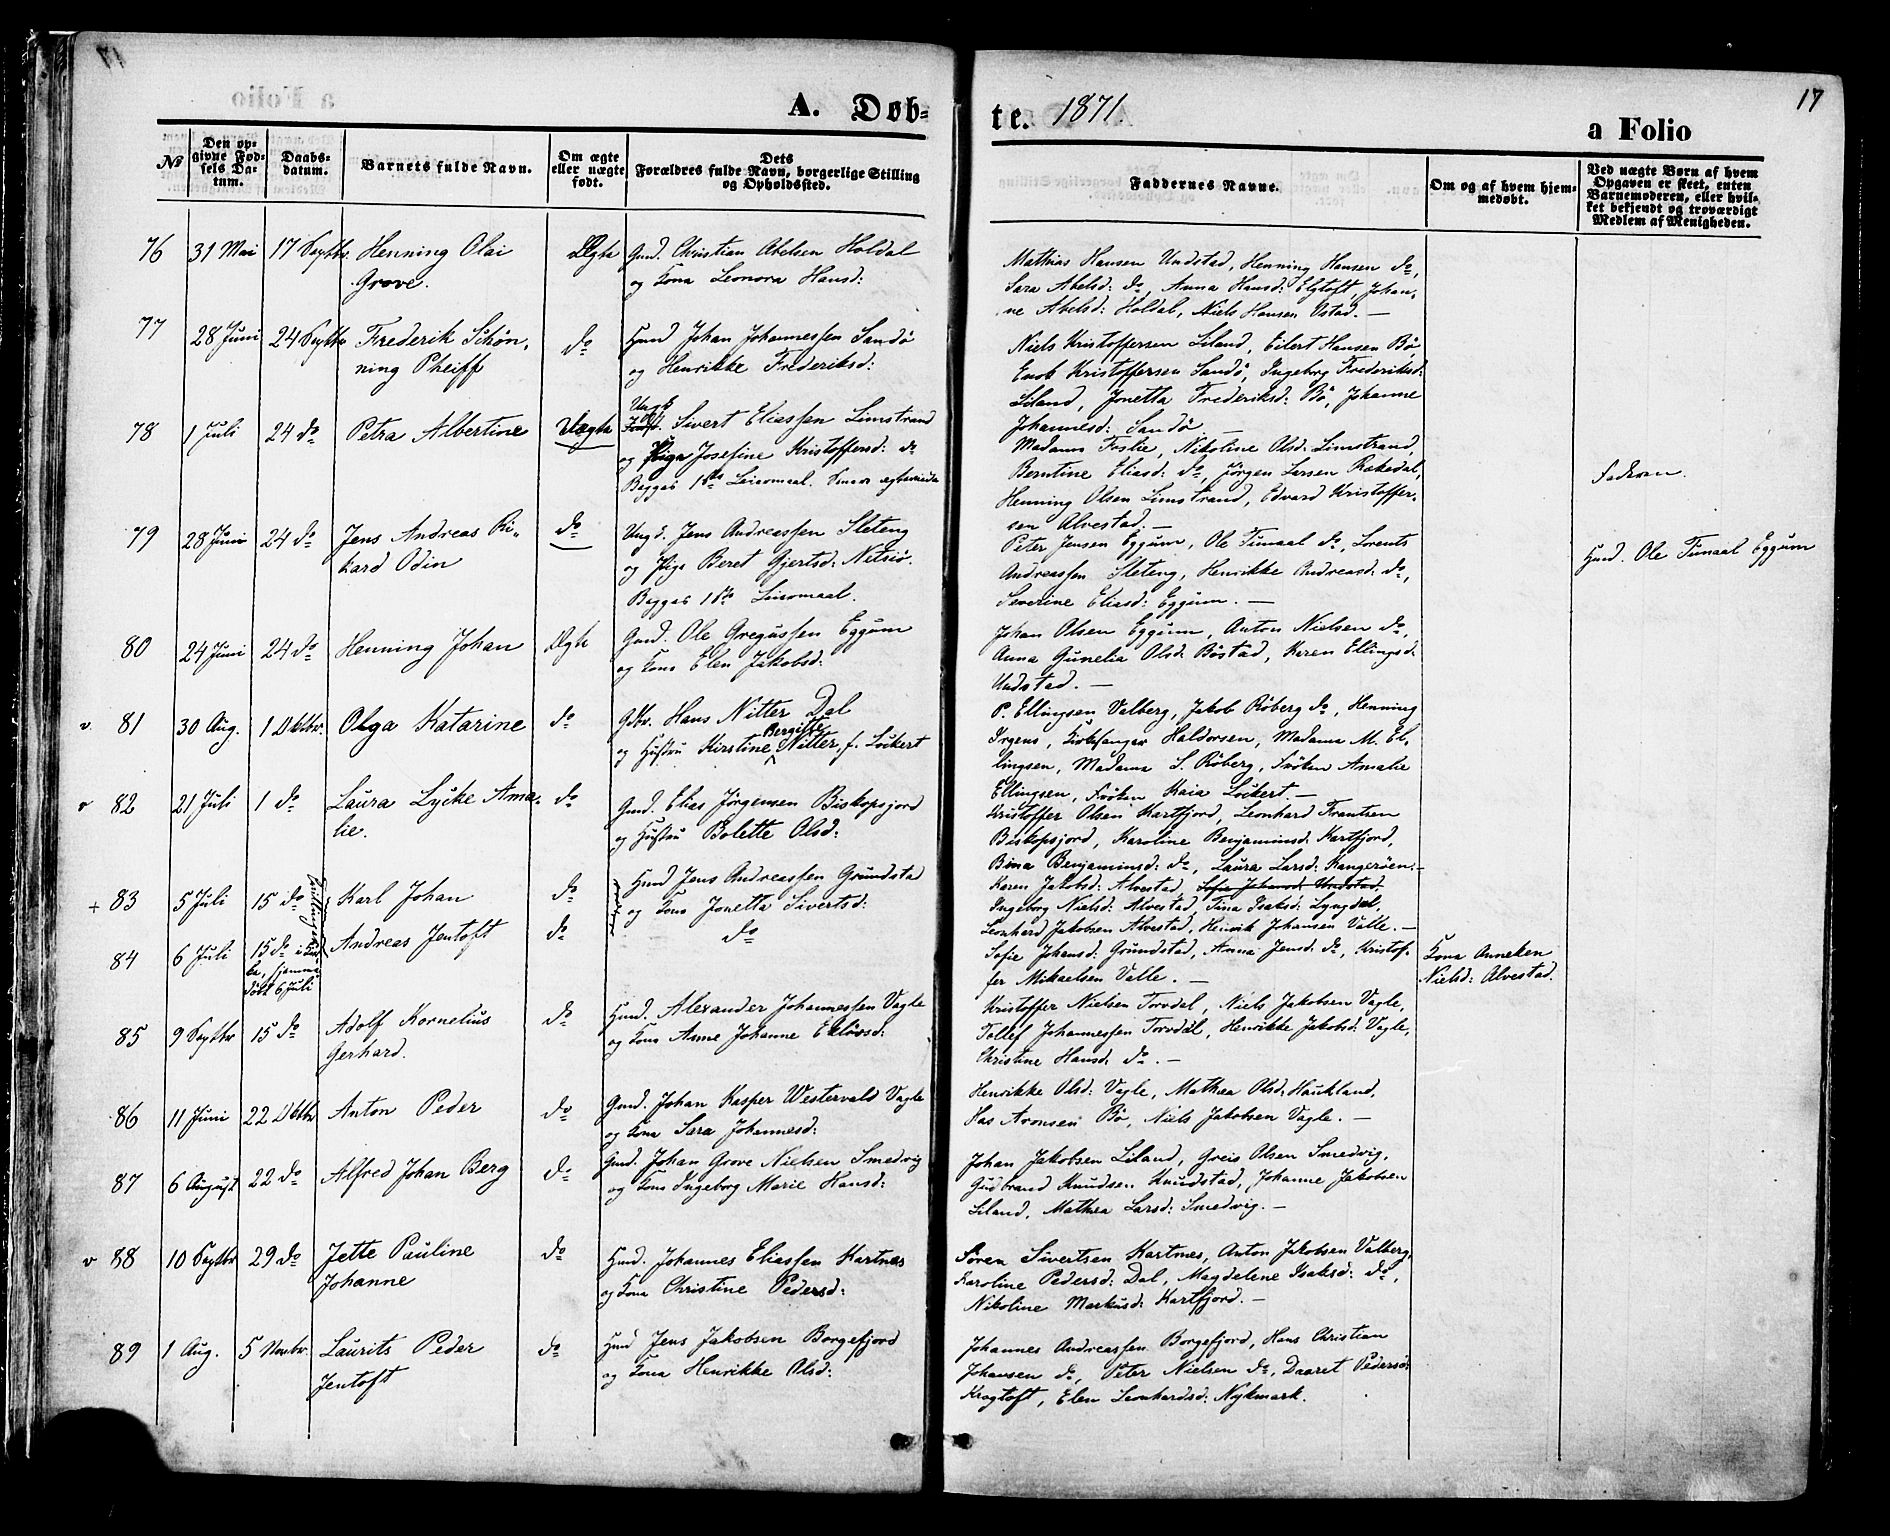 A. Døb-
te. 1871.
a Folio
17
No
Den op-
givne Fød-
sels Da-
tum.
Daabs-
datum.
Barnets fulde Navn.
Om ægte
eller uægte
født.
Dets
Forældres fulde Navn, borgerlige Stilling
og Opholdssted.
Faddernes Navne.
Om og af hvem hjem-
medøbt.
Ved uægte Børn af hvem
Opgaven er skeet, enten
Barnemoderen, eller hvil-
ket bekjendt og troværdigt
Medlem af Menigheden.
76 31 Mai 17 Septbr. Henning Olai Ægte Gmd. Christian Abelsen Holdal
Grove. og Kona Leonora Hansd:
Mathias Hansen Undstad, Henning Hansen do,
Sara Abelsd: do, Anna Hansd: Elgtoft, Johan-
ne Abelsd: Holdal, Niels Hansen Ustad. —
77 28 Juni 24 Septbr Frederik Schøn- do Hmd Johan Johannessen Sandø
ning Pheiff og Henrikke Frederiksd:
Niels Kristoffersen Liland, Eilert Hansen Bø,
Enok Kristoffersen Sandø, Ingeborg Frederiksd:
Liland, Jonetta Frederiksd: Bø, Johanne
Johannesd: Sandø. —
78 1 Juli 24 do Petra Albertine Uægte Sivert Eliassen Limstrand
og Pige Josefine Kristoffersd: do
Begges 1ste Leiermaal.
Madam Foslie, Nikoline Olsd: Limstrand,
Berntine Eliasd: do, Jørgen Larsen Rekedal,
Henning Olsen Limstrand, Edvard Kristoffer-
sen Alvestad. —
Faderen.
79 28 Juni 24 do Jens Andreas Ri- do Ungd. Jens Andreassen Sleteng
kard Odin og Pige Beret Gjertsd: Netsiø.
Begges 1ste Leiermaal.
Peter Jensen Eggum, Ole Tunaal do, Lorents
Andreassen Sleteng, Henrikke Andreasd: do,
Severine Eliasd: Eggum. —
Hmd. Ole Tunaal Eggum
80 24 Juni 24 do Henning Johan Ægte Gmd. Ole Gregussen Eggum
og Kona Elen Jakobsd:
Johan Olsen Eggum, Anton Nielsen do,
Anna Gunelia Olsd: Bøstad, Karen Ellingsd:
Undstad. —
v. 81 30 Aug. 1 Oktbr. Olga Katarine do Gdbr. Hans Nitter Dal
Bergitte
og Hustru Kirstine Nitter, f. Lockert
P. Ellingsen Valberg, Jakob Röberg do, Henning
Irgens, Kirkesanger Haldorsen, Madame M. El-
lingsen, Madama S. Röberg, Frøken Amalie
Ellingsen, Frøken Kaia Lockert. —
v 82 21 Juli 1 do Laura Lycke Ama- do Gmd. Elias Jörgensen Biskopsjord
lie. og Hustru Bolette Olsd:
Kristoffer Olsen Kartfjord, Leonhard Frantsen
Biskopsjord, Karoline Benjaminsd: Kartfjord,
Bina Benjaminsd: do, Laura Larsd: Kangerøen. —
+ 83 5 Juli 15 do Karl Johan do Hmd Jens Andreassen Grundstad
og Kona Jonetta Sivertsd:
Tvillinger
Karen Jakobsd: Alvestad, Sofie Johansd: Undstad,
Ingeborg Nielsd: Alvestad, Tina Isaksd: Lyngdal,
Leonhard Jakobsen Alvestad, Henrik Johansen Valle. —
84 6 Juli 15 do i Kir- Andreas Jentoft do do
ke, hjemme-
døbt 6 Juli
Sofie Johansd: Grundstad, Anna Jensd: do, Kristof-
fer Mikaelsen Valle. —
Kona Anneken
Nielsd: Alvestad.
85 9 Septbr 15 do Adolf Kornelius do Hmd. Alexander Johannessen Vagle
Gerhard. og Kona Anne Johanne Ellövsd:
Kristoffer Nielsen Torvdal, Niels Jakobsen Vagle,
Tollef Johannessen Torvdal, Henrikke Jakobsd: Vagle,
Christine Hansd: do. —
86 11 Juni 22 Oktbr Anton Peder do Gmd. Johan Kasper Westervald Vagle
og Kona Sara Johannesd:
Henrikke Olsd: Vagle, Mathea Olsd: Haukland,
Has Aronsen Bø, Niels Jakobsen Vagle. —
87 6 August 22 do Alfred Johan Berg do Gmd. Johan Grove Nielsen Smedvig
og Kona Ingeborg Marie Hansd:
Johan Jakobsen Liland, Greis Olsen Smedvig,
Gudbrand Knudsen Knudstad, Johanne Jakobsen
Liland, Mathea Larsd: Smedvig. —
v 88 10 Septbr 29 do Jette Pauline do Hmd. Johannes Eliassen Kartnes
Johanne og Kona Christine Pedersd:
Sören Sivertsen Kartnes, Anton Jakobsen Valberg,
Karoline Pedersd: Dal, Magdelene Isaksd: do,
Nikoline Markusd: Kartfjord. —
89 1 Aug. 5 Novbr. Laurits Peder do Hmd Jens Jakobsen Borgefjord
Jentoft og Kona Henrikke Olsd:
Johannes Andreassen Borgefjord, Hans Christian
Johansen do, Peter Nielsen do, Daaret Pedersd:
Kragtoft, Elen Leonhardsd: Nykmark.